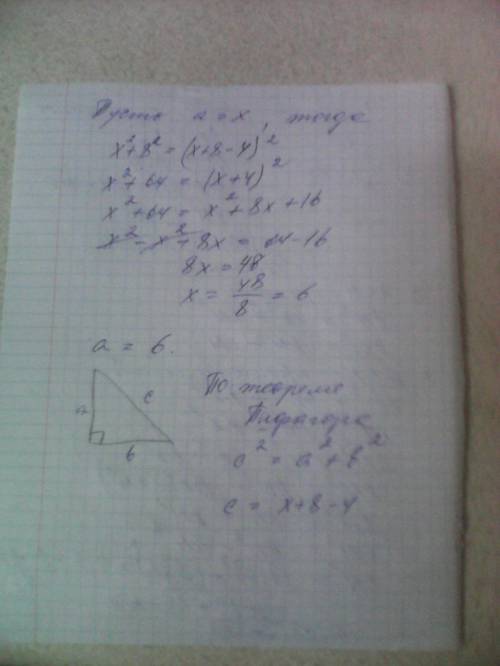 Пусть a = x, тогда
x² + 8² = (x+8-4)²
x² + 64 = (x+4)²
x² + 64 = x² + 8x + 16
x² - x² + 8x = 64 - 16
8x = 48
x = 48/8 = 6
a = 6.
a
c
b
По теореме
Пифагора
c² = a² + b²
c = x+8-4